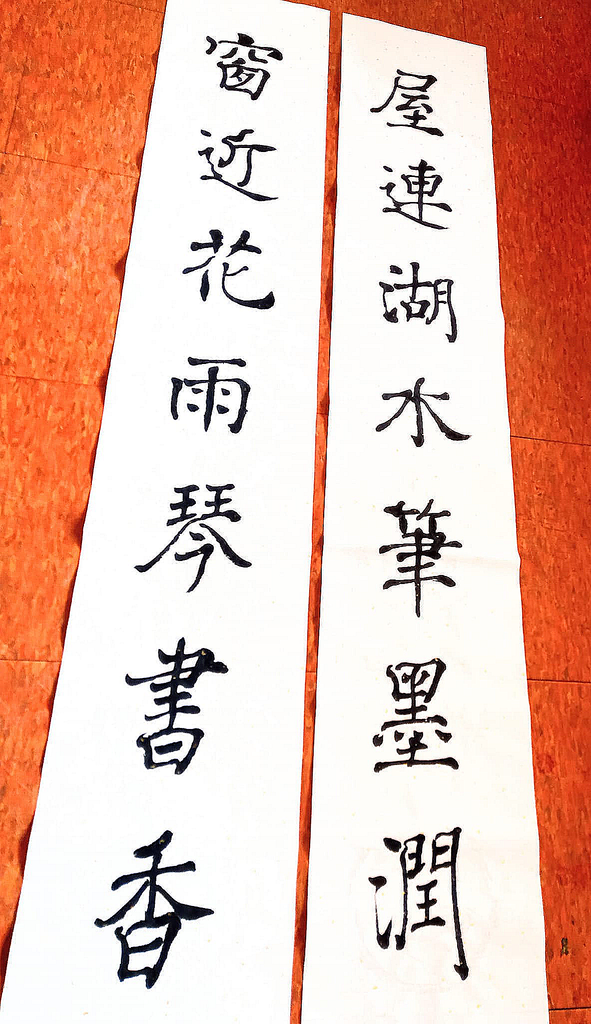 屋連湖水筆墨潤
窗近花雨琴書香